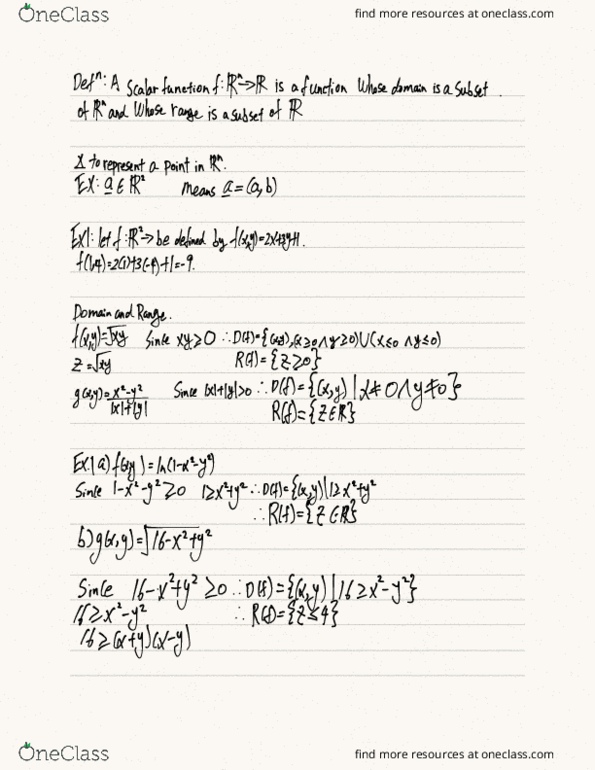 OneClass find more resources at oneclass.com
Defⁿ: A Scalar function f: ℝⁿ→ℝ is a function Whose domain is a subset
of ℝⁿ and Whose range is a subset of ℝ
x to represent a point in ℝⁿ.
EX: a ∈ ℝ² means a = (a, b)
EX1: let f: ℝ²→ be defined by f(x,y)=2x+3y+1.
f(1,-4)=2(1)+3(-4)+1=-9.
Domain and Range.
f(x,y)=√xy Since xy≥0 ∴D(f)={(x,y),(x≥0∧y≥0)∪(x≤0∧y≤0)
z=√xy R(f)={z≥0}
g(x,y)=x²-y²/|x|+|y| Since |x|+|y|>0 ∴D(f)={(x,y)|x≠0∧y≠0}
R(f)={z∈ℝ}
Ex.1a) f(x,y)=ln(1-x²-y²)
Since 1-x²-y²≥0 1≥x²+y² ∴D(f)={(x,y)|1≥x²+y²
∴R(f)={z∈ℝ}
b) g(x,y)=√16-x²+y²
Since 16-x²+y²≥0 ∴D(f)={(x,y)|16≥x²-y²}
16≥x²-y² ∴R(f)={z≤4}
16≥(x+y)(x-y)
OneClass find more resources at oneclass.com